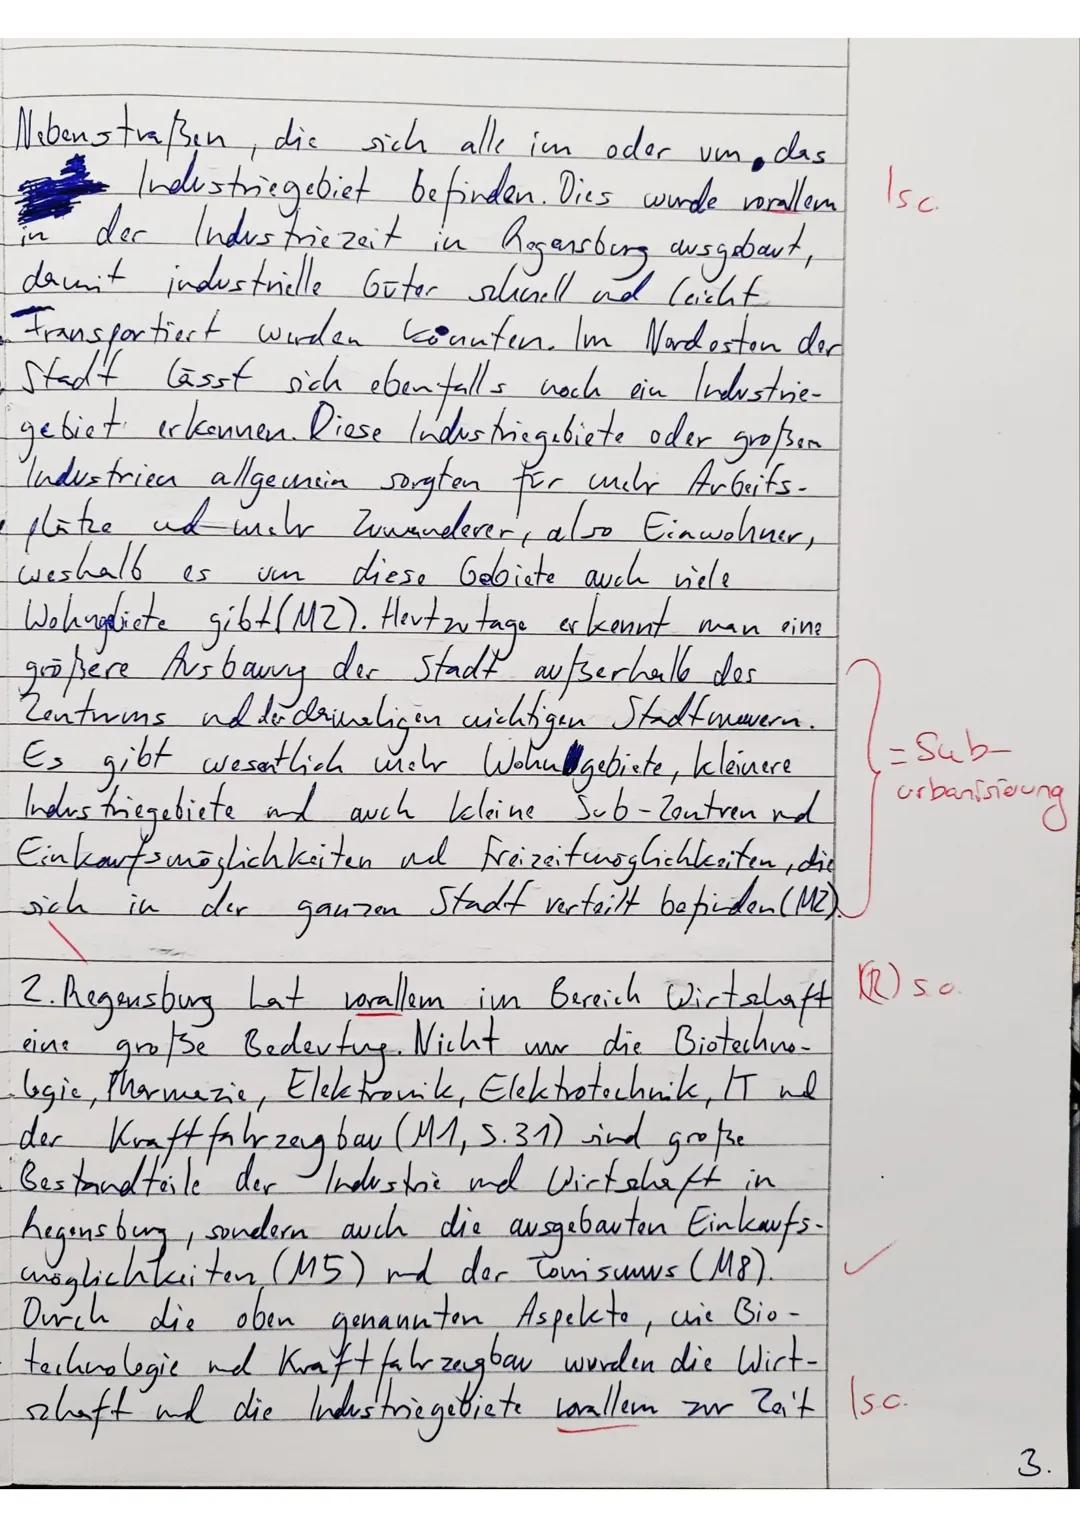 Nebenstraßen, die sich alle im oder um das
Industriegebiet befinden. Dies wurde vorallem
Isc.
in der Industriezeit in Regensburg ausgebaut,
damit industrielle Güter schnell und leicht
Transportiert werden könnten. Im Nordosten der
Stadt lässt sich ebenfalls noch ein Industrie-
gebiet erkennen. Diese Industriegebiete oder großen
Industrien allgemein sorgten für mehr Arbeits-
plätze und mehr Zuwanderer, also Einwohner,
weshalb es um diese Gebiete auch viele
Wohngebiete gibt (M2). Heutzutage erkennt man eine
größere Ausbauung der Stadt außerhalb des
Zentrums und der damaligen wichtigen Stadtmauern.
Es gibt wesentlich mehr Wohngebiete, kleinere
= Sub-
urbanisierung
Industriegebiete und auch kleine Sub-Zentren und
Einkaufsmöglichkeiten und Freizeitmöglichkeiten, die
sich in der ganzen Stadt verteilt befinden (M2).
2. Regensburg hat vorallem im Bereich Wirtschaft
(R) s.o.
eine große Bedeutung. Nicht nur die Biotechno-
logie, Pharmazie, Elektronik, Elektrotechnik, IT und
der Kraftfahrzeugbau (M1, S.31) sind große
Bestandteile der Industrie und Wirtschaft in
Regensburg, sondern auch die ausgebauten Einkaufs-
möglichkeiten (M5) und der Tourismus (M8).
Durch die oben genannten Aspekte, wie Bio-
technologie und Kraftfahrzeugbau wurden die Wirt-
schaft und die Industriegebiete vorallem zur Zeit
Is.o.
3.